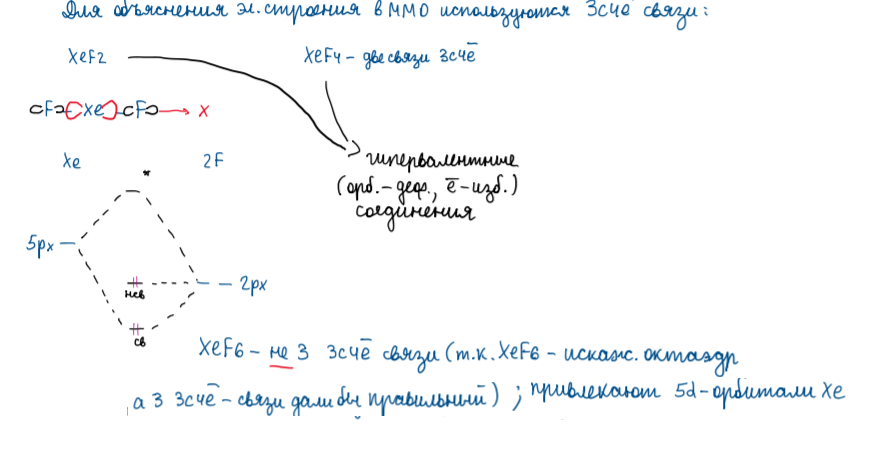 Для объяснения эл. строения в ММО используются 3сче связи:
XeF2
XeF4 - две связи 3сче̄
F Xe F → x
Xe
2F
*
гипервалентные
(орб.-деф., е̄-изб.)
соединения
5px
2px
нсв
св
XeF6 - не 3 3сче̄ связи (т.к. XeF6 - искаж. октаэдр
а 3 3сче̄ - связи дали бы правильный); привлекают 5d-орбитали Xe